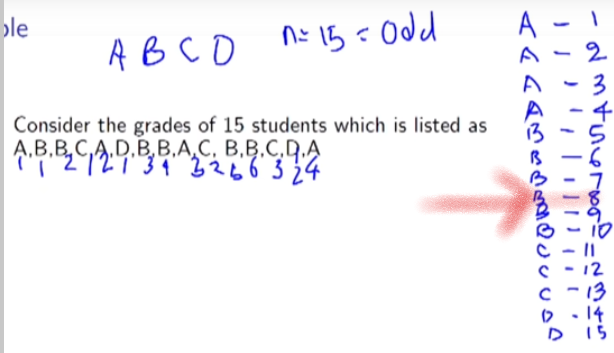 ple
A B C D n = 15 = Odd
Consider the grades of 15 students which is listed as
A,B,B,C,A,D,B,B,A,C, B,B,C,D,A
1 1 2 1 2 1 3 4 3 2 5 6 3 2 4
A - 1
A - 2
A - 3
A - 4
B - 5
B - 6
B - 7
B - 8
B - 9
B - 10
C - 11
C - 12
C - 13
D - 14
D 15